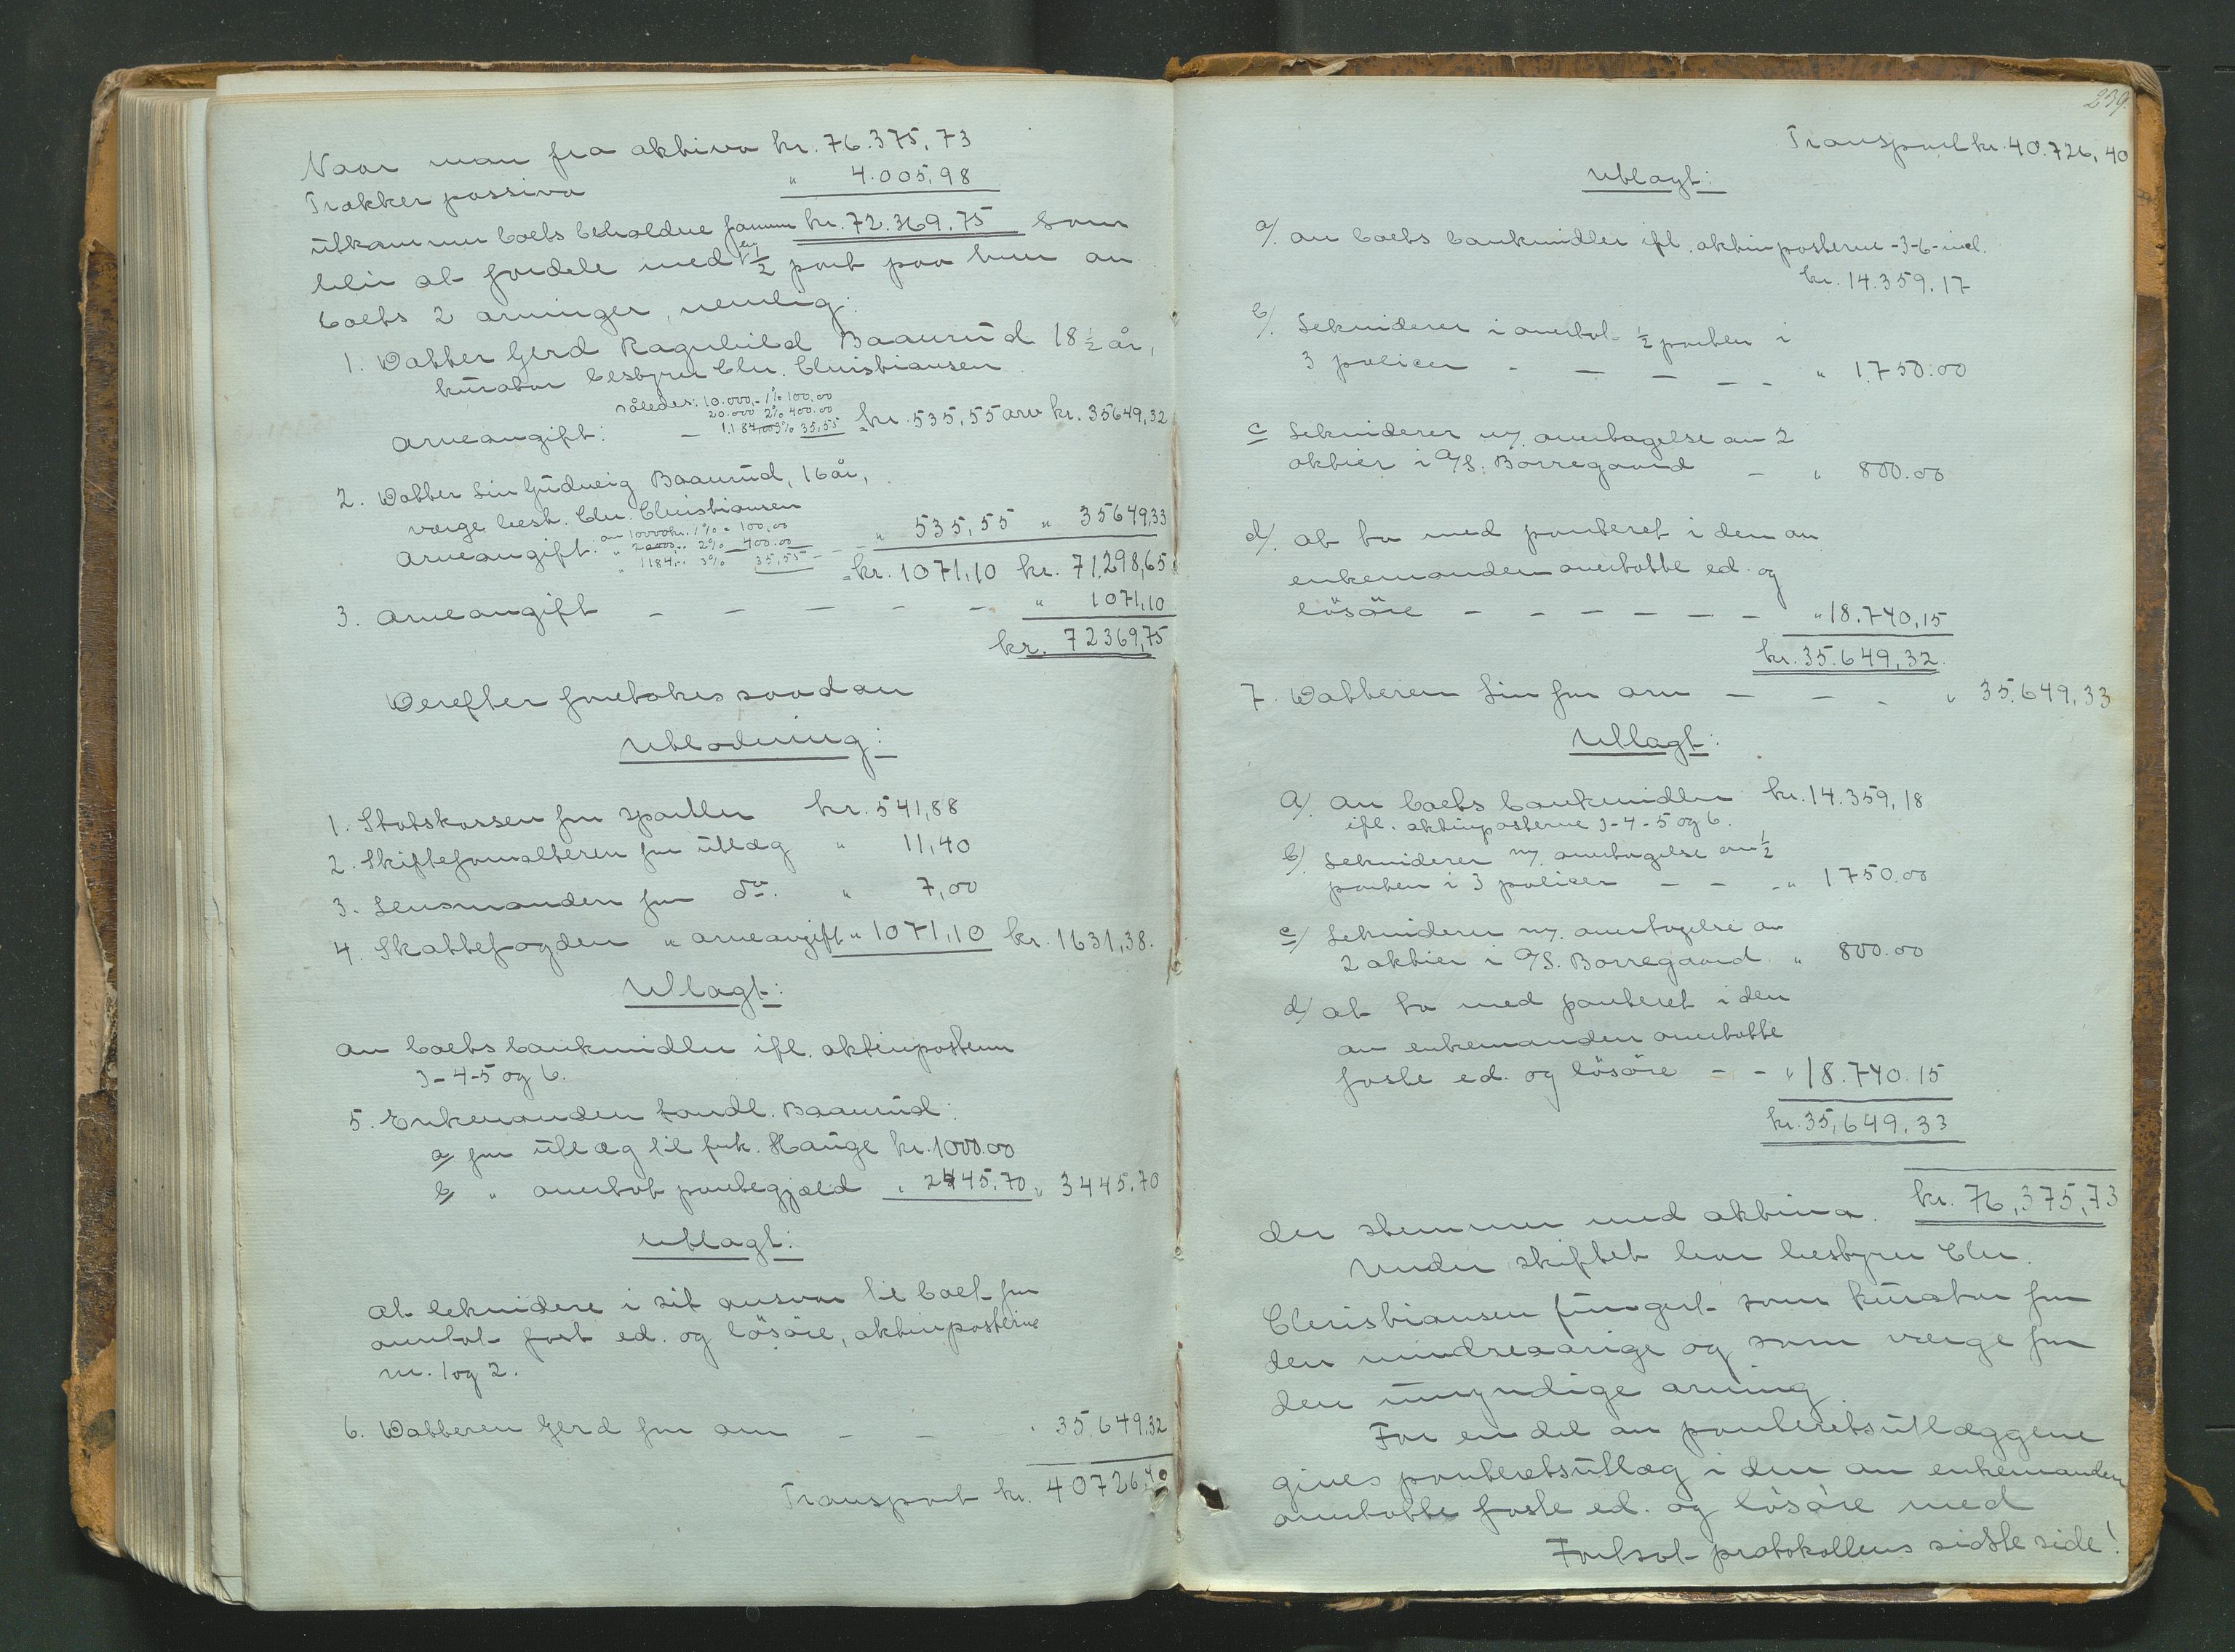 Naar man fra aktiva kr. 76.375,73
Trækker passiva " 4.005,98
utkommer boets beholdne formue kr. 72.369.75 som
blir at fordele med en ½ part paa hver av
boets 2 arvinger, nemlig:
1. Datter Gerd Ragnhild Baarud 18½ år,
kurator bestyrer Chr. Christiansen
således: 10.000,- 1% 100,00
20.000 2% 400.00
Arveavgift: – 1.184,00 3% 35,55 = kr. 535,55 arv kr. 35649,32
2. Datter Liv Gudveig Baarud, 16 år,
verge best. Chr. Christiansen
av 10000 kr. 1% = 100,00
Arveavgift: " 20000,- 2% 400.00 – – " 535,55 " 35649,33
" 1184,- 3% 35,55
= kr. 1071,10 kr. 71.298,65
3. Arveavgift – – – – – " 1071,10
kr. 72369,75
Derefter foretokes saadan
Utlodning:
1. Statskassen for sportler kr. 541,88
2. Skifteforvalteren for utlæg " 11,40
3. Lensmanden for do. " 7,00
4. Skattefogden " arveavgift " 1071,10 kr. 1631,38.
Utlagt:
av boets bankmidler ifl. aktivposterne
3-4-5 og 6.
5. Enkemanden Baarud:
a/ for utlæg til frk. Hauge kr. 1000.00
b/ " overtat pantegjæld " 2445.70 " 3445,70
Utlagt:
At lekvidere i sit ansvar til boet for
overtat fast ed. og løsøre, aktivposterne
nr. 1 og 2.
6. Datteren Gerd for arv – – " 35.649,32
Transport kr. 40726,40
239.
Transport kr. 40.726,40
Utlagt:
a/. av boets bankmidler ifl. aktivposterne -3-6- incl.
kr. 14.359.17
b/. Lekviderer i overtat ½ parten i
3 policer - – – – - " 1.750.00
c Lekviderer v/. overtagelse av 2
aktier i A/S. Borregaard – " 800.00
d/. at ta med panteret i den av
enkemanden overtatte ed. og
løsøre – – – – – – " 18.740,15
kr. 35.649,32.
7. Datteren Liv for arv – – - " 35.649,33
Utlagt:
a/ av boets bankmidler kr. 14.359,18
ifl. aktivposterne 3-4-5 og 6.
b/. Lekviderer v/. overtagelse av ½
parten i 3 policer – – -" 1750.00
c/ Lekviderer v/. overtagelse av
2 aktier i A/S. Borregaard. " 800.00
d/ at ta med panteret i den
av enkemanden overtatte
faste ed. og løsøre – - " 18.740.15
kr. 35,649.33
der stemmer med aktiva. kr. 76,375,73
Under skiftet har bestyrer Chr.
Christiansen fungert som kurator for
den mindreaarige og som verge for
den umyndige arving.
For en del av panteretsutlæggene
gives panteretsutlæg i den av enkemanden
overtatte faste ed. og løsøre med
Fortsat protokollens sidste side!